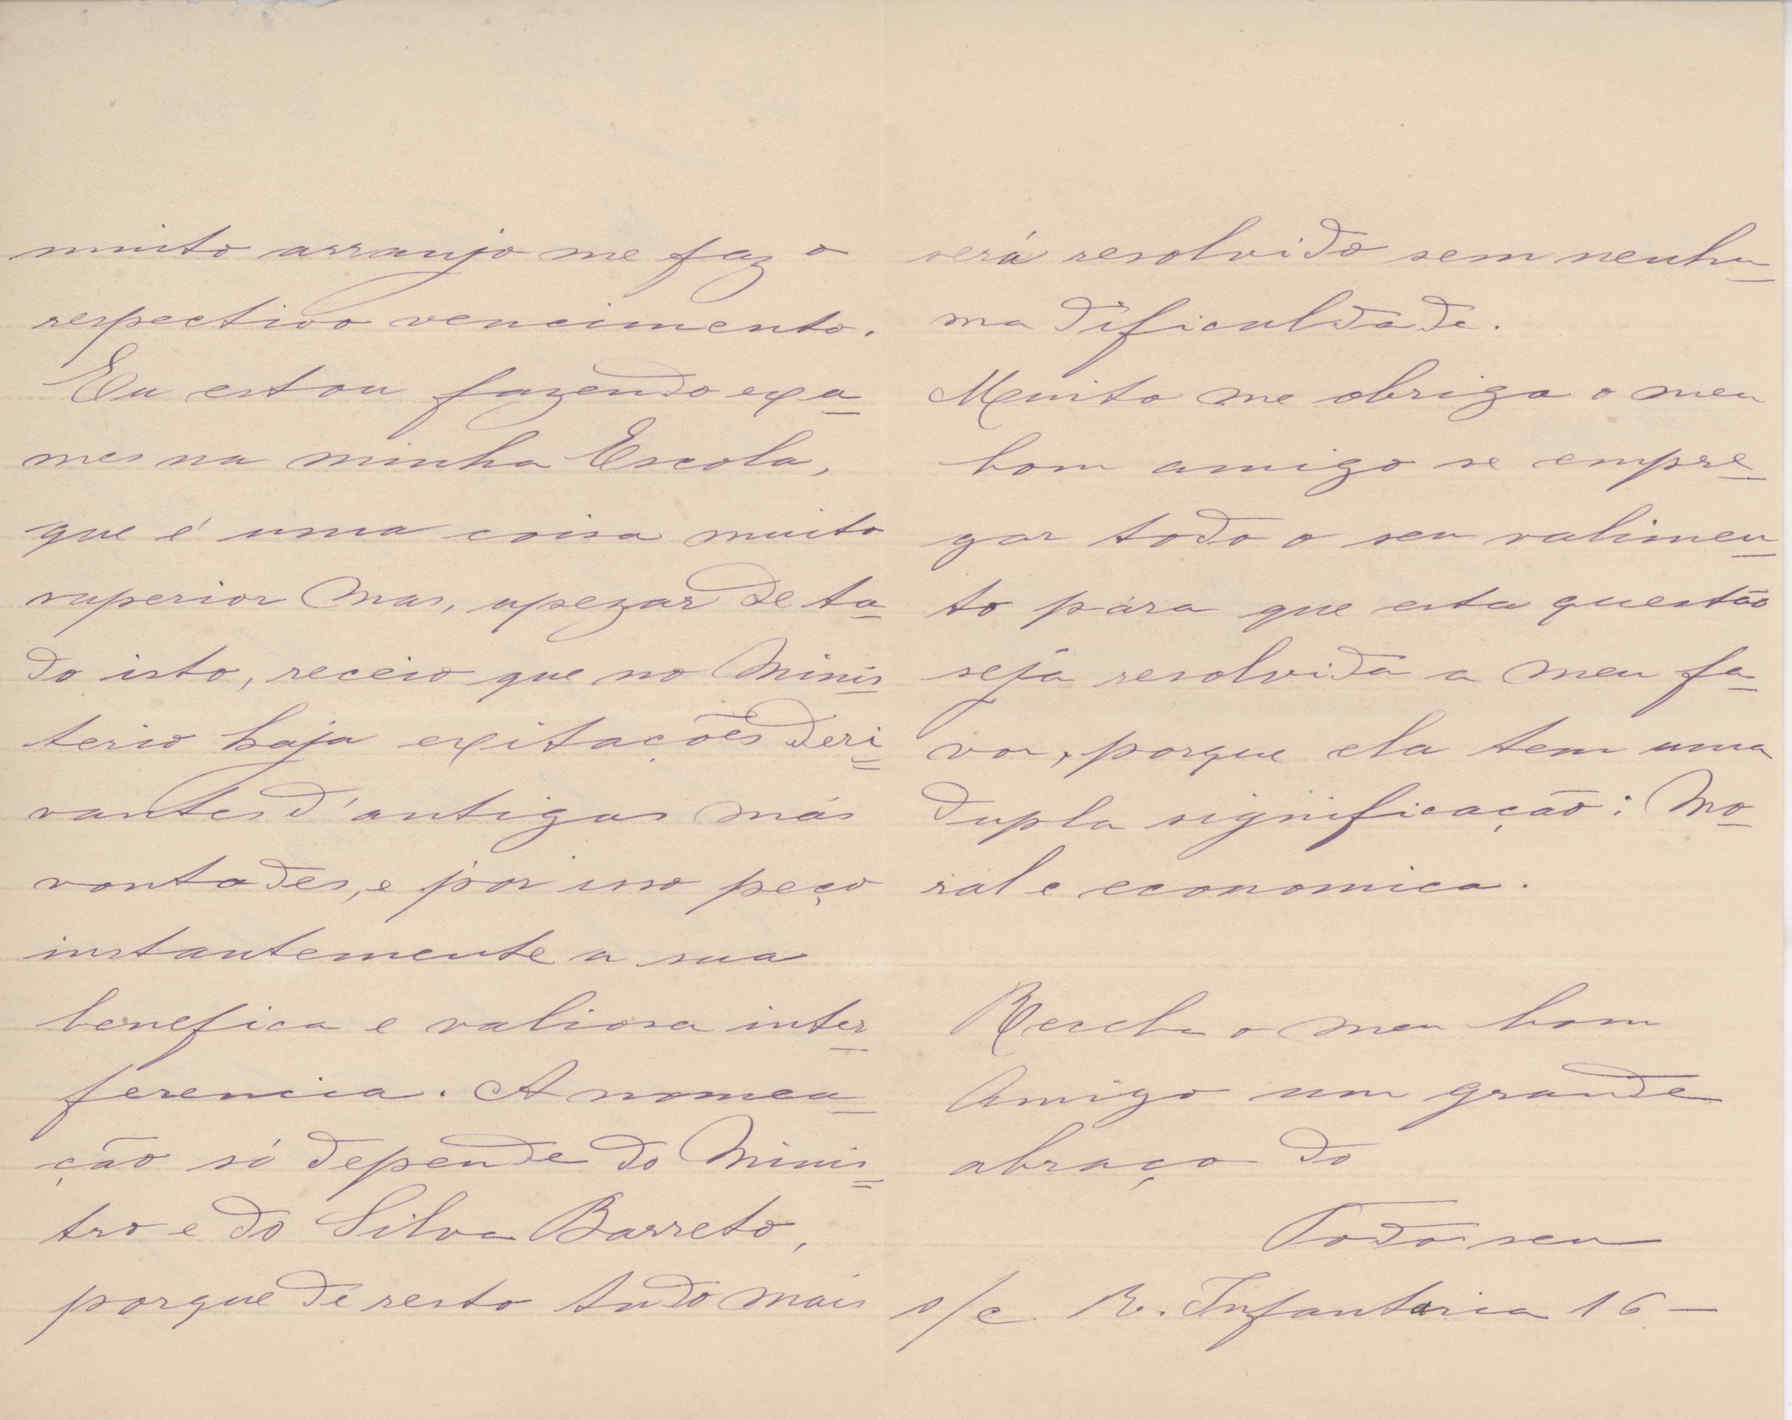 muito arranjo me faz o
respectivo vencimento.
Eu estou fazendo exa-
mes na minha Escola,
que é uma coisa muito
superior mas, apezar de tu-
do isto, receio que no Minis=
terio haja exitações deri=
vantes d'antigas más
vontades, e por isso peço
instantemente a sua
benefica e valiosa inter-
ferencia. A nomea-
ção só depende do Minis=
tro e do Silva Barreto,
porque de resto tudo mais
será resolvido sem nenhu-
ma dificuldade.
Muito me obriga o meu
bom amigo se empre-
gar todo o seu valimen-
to para que esta questão
seja resolvida a meu fa-
vor, porque ela tem uma
dupla significação: Mo-
ral e economica.
Receba o meu bom
Amigo um grande
abraço do
Todo seu
s/c R. Infantaria 16 -